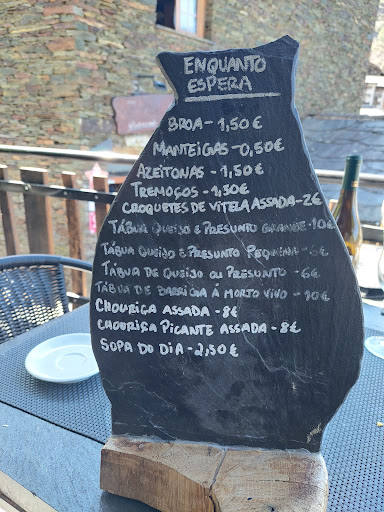 ENQUANTO
ESPERA
BROA - 1,50€
MANTEIGAS - 0,50€
AZEITONAS - 1,50€
TREMOÇOS - 1,30€
CROQUETES DE VITELA ASSADA - 2€
TÁBUA QUEIJO E PRESUNTO GRANDE - 10€
TÁBUA QUEIJO E PRESUNTO PEQUENA - 6€
TÁBUA DE QUEIJO OU PRESUNTO - 6€
TÁBUA DE BARRIGA Á MORTO VIVO - 10€
CHOURIÇA ASSADA - 8€
CHOURIÇA PICANTE ASSADA - 8€
SOPA DO DIA - 2,50€